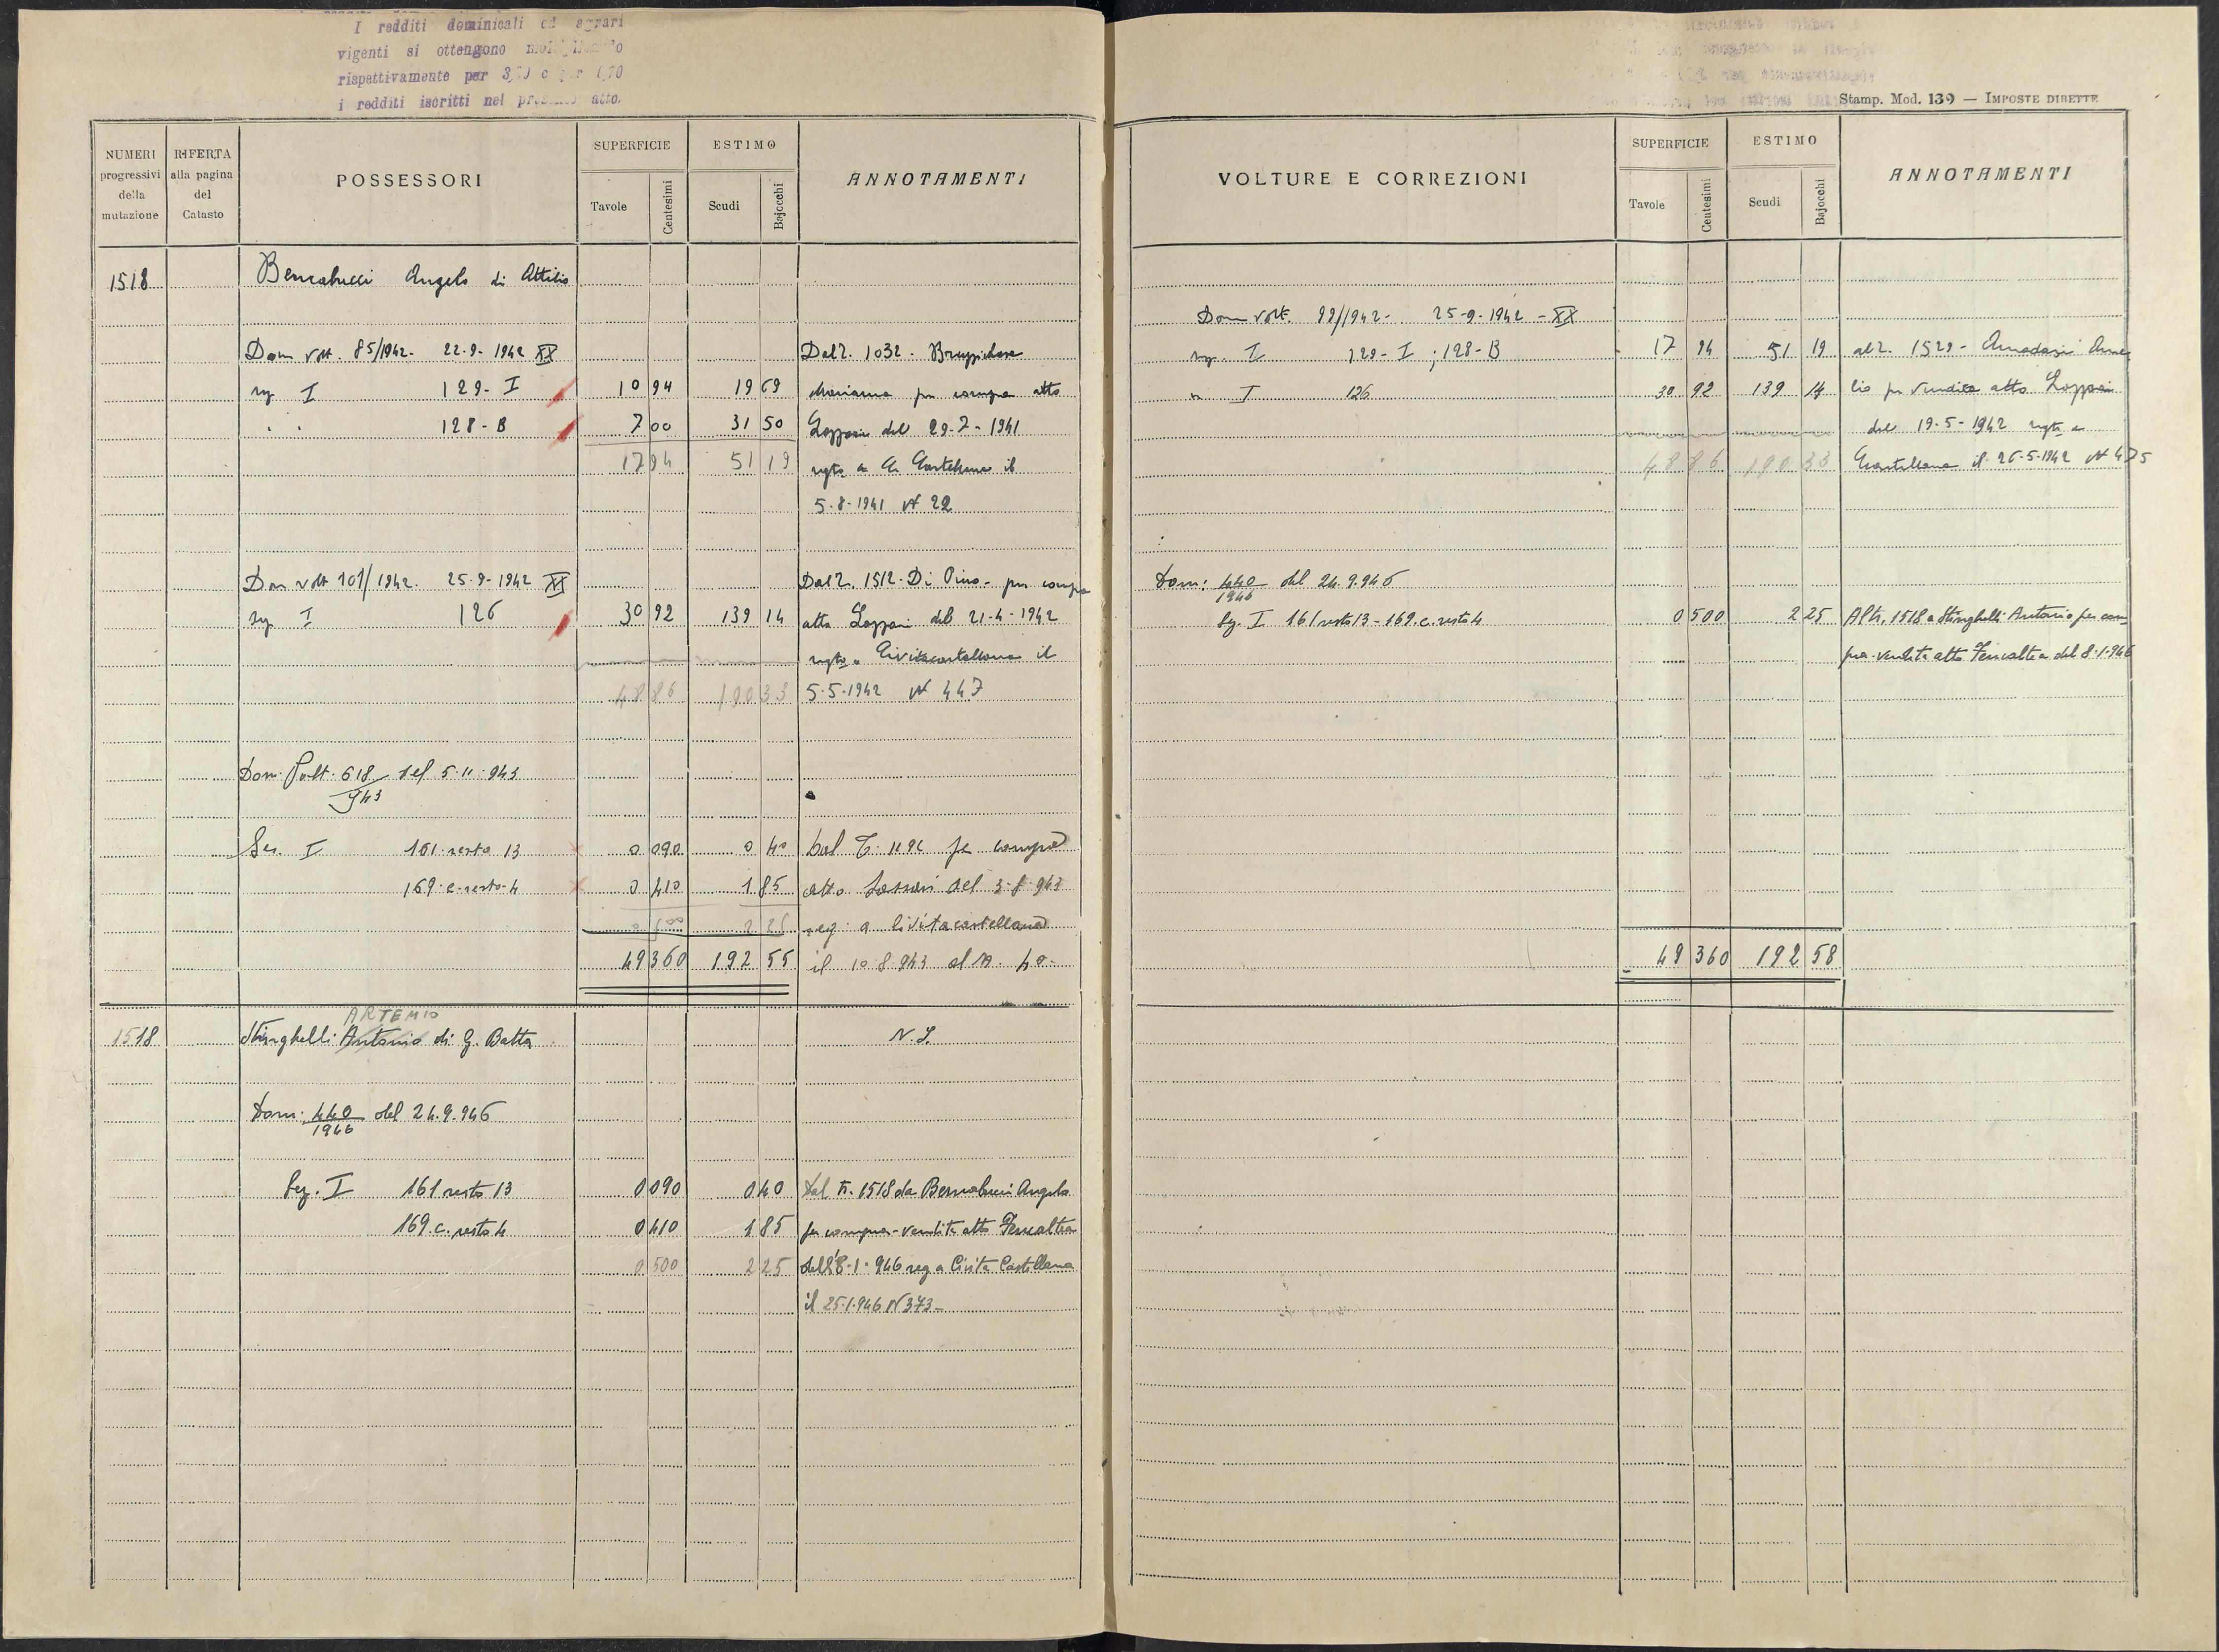 I redditi dominicali ed agrari
vigenti si ottengono
rispettivamente per
i redditi iscritti nel presente atto.
NUMERI progressivi della mutazione
RIFERTA alla pagina del Catasto
POSSESSORI
SUPERFICIE
Tavole
Centesimi
ESTIMO
Scudi
Bajocchi
ANNOTAMENTI
1518 Bernabucci Angelo di Attilio
Dom volt. 85/1942. 22-9-1942 XX Dal ?. 1032.
sez I 129-I 10 94 19 69 Marianna per compra atto
" " 128-B 7 00 31 50 Lozzari del 29-7-1941
17 94 51 19 regto a C. Castellana il
5-8-1941 N 22
Dom volt 101/1942. 25-9-1942 XX Dal ?. 1512. Di Pino - per compra
sez I 126 30 92 139 14 atto Lozzari del 21-4-1942
regto a Civitacastellana il
48 86 190 33 5-5-1942 N 447
Dom. Volt. 618/943 del 5-11-943
Sez. I 161 resto 13 0 090 0 40 Dal T. per compra
169-c-resto-4 0 410 1 85 atto del 3-8-943
0 500 2 25 reg a Civitacastellana
49 360 192 55 il 10-8-943 al N. 40-
1518 Stinghelli Antonio di G. Batta N.I.
ARTEMIO
Dom: 440/1946 del 24.9.946
Sez. I 161 resto 13 0 090 0 40 Dal N. 1518 da Bernabucci Angelo
169.c. resto 4 0 410 1 85 per compra-vendita atto
0 500 2 25 dell'8-1-946 reg a Civita Castellana
il 25-1-946 N 373-
Stamp. Mod. 139 — IMPOSTE DIRETTE
VOLTURE E CORREZIONI
SUPERFICIE
Tavole
Centesimi
ESTIMO
Scudi
Bajocchi
ANNOTAMENTI
Dom volt. 99/1942- 25-9-1942-XX
sez. I 129-I; 128-B 17 94 51 19 al ?. 1529- Amadasi Ame
" I 126 30 92 139 14 lio per vendita atto Lozzari
del 19-5-1942 regto a
48 86 190 33 Castellana il 26-5-1942 N 475
Dom: 440/1946 del 24.9.946
Sez. I 161 resto 13 - 169.c. resto 4 0 500 2 25 Al N. 1518 a Stinghelli Antonio per com
pra-vendita atto del 8-1-946
49 360 192 58